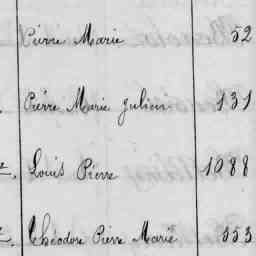 Pierre Marie 52
Pierre Marie Julien 131
Louis Pierre 1088
Théodore Pierre Marie 553